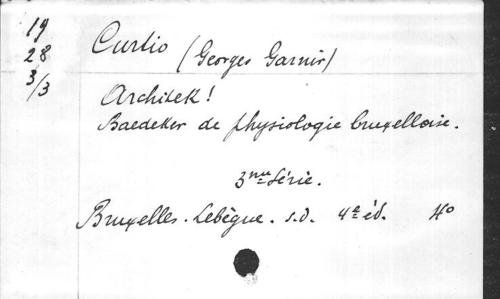 19
28
3/3
Curtio (Georges Garnir)
Architek!
Baedeker de physiologie bruxelloise.
3me Série.
Bruxelles. Lebègue. s.d. 4e éd. 4o